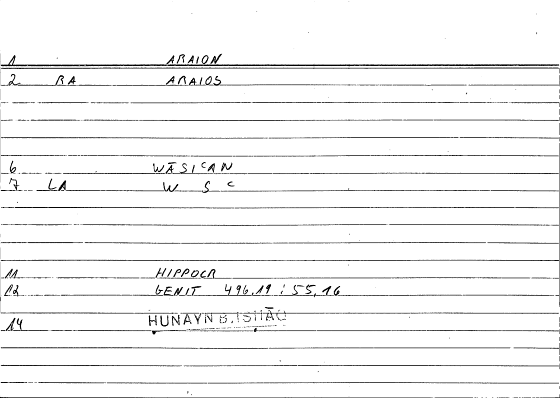 1 ARAION
2 RA ARAIOS
6 WĀSIᶜAN
7 LA W S ᶜ
11 HIPPOCR
12 GENIT 496,19 : 55,16
14 HUNAYN B. ISHĀQ